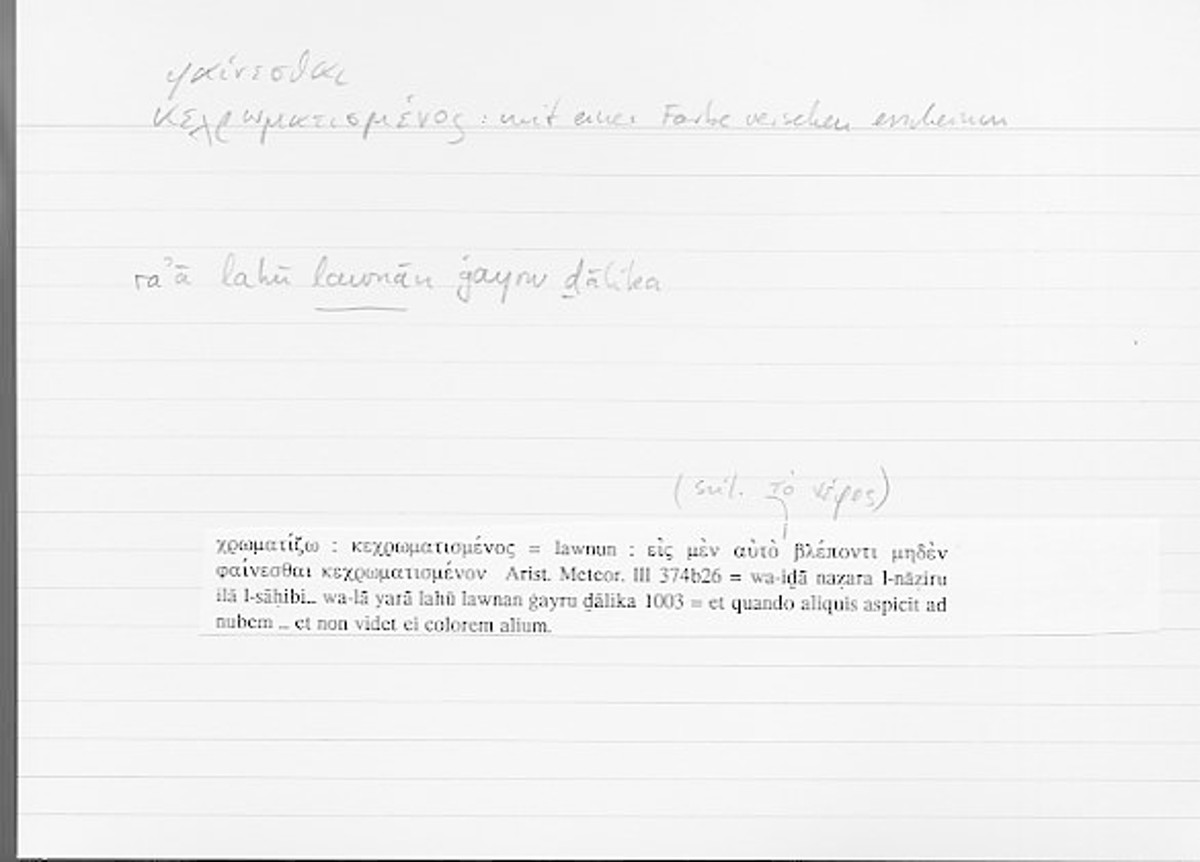 φαίνεσθαι
κεχρωματισμένος : mit einer Farbe versehen erscheinen
ra’ā lahū lawnān ġayru ḏālika
(scil. τὸ νέφος)
χρωματίζω : κεχρωματισμένος = lawnun : εἰς μὲν αὐτὸ βλέποντι μηδὲν
φαίνεσθαι κεχρωματισμένον Arist. Meteor. III 374b26 = wa-iḏā naẓara l-nāẓiru
ilā l-sāḥibi... wa-lā yarā lahū lawnan ġayru ḏālika 1003 = et quando aliquis aspicit ad
nubem ... et non videt ei colorem alium.